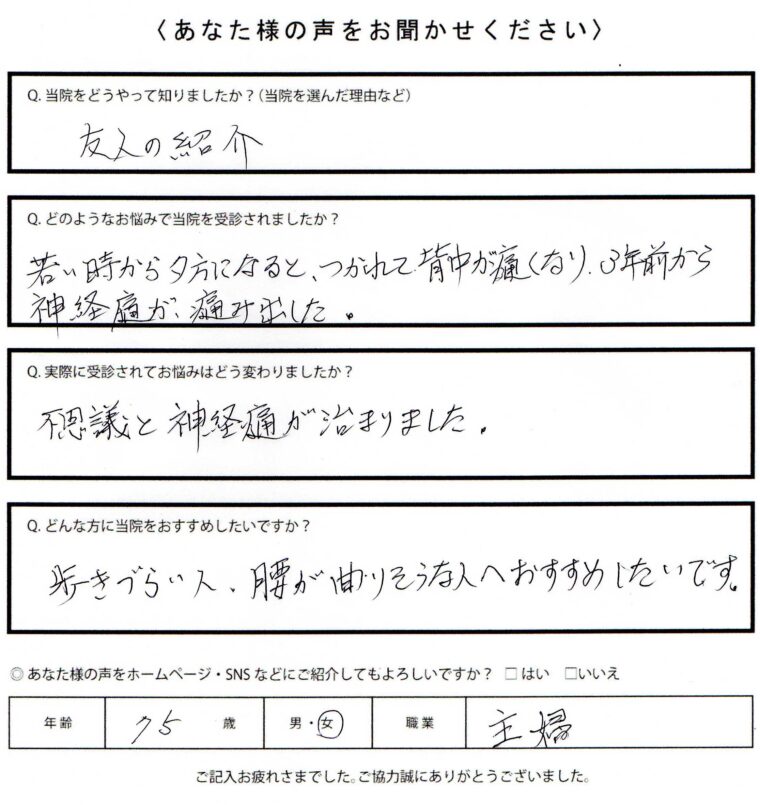 〈あなた様の声をお聞かせください〉
Q. 当院をどうやって知りましたか？（当院を選んだ理由など）
友人の紹介
Q. どのようなお悩みで当院を受診されましたか？
若い時から夕方になると、つかれて背中が痛くなり、3年前から
神経痛が、痛み出した。
Q. 実際に受診されてお悩みはどう変わりましたか？
不思議と神経痛が治まりました。
Q. どんな方に当院をおすすめしたいですか？
歩きづらい人、腰が曲りそうな人へおすすめしたいです。
◎ あなた様の声をホームページ・SNS などにご紹介してもよろしいですか？ □ はい □いいえ
年齢 75 歳 男・女 職業 主婦
ご記入お疲れさまでした。ご協力誠にありがとうございました。